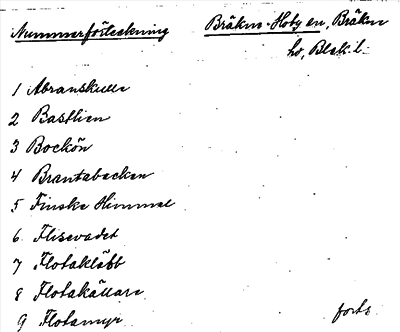 Nummerförteckning
Bräkne-Hoby sn, Bräkne
hd, Blek. l.
1 Abranskulle
2 Bastlien
3 Bockön
4 Brantabacken
5 Finske Himmel
6 Flisevadet
7 Flotakläbb
8 Flotakällare
9 Flotamyr
forts.